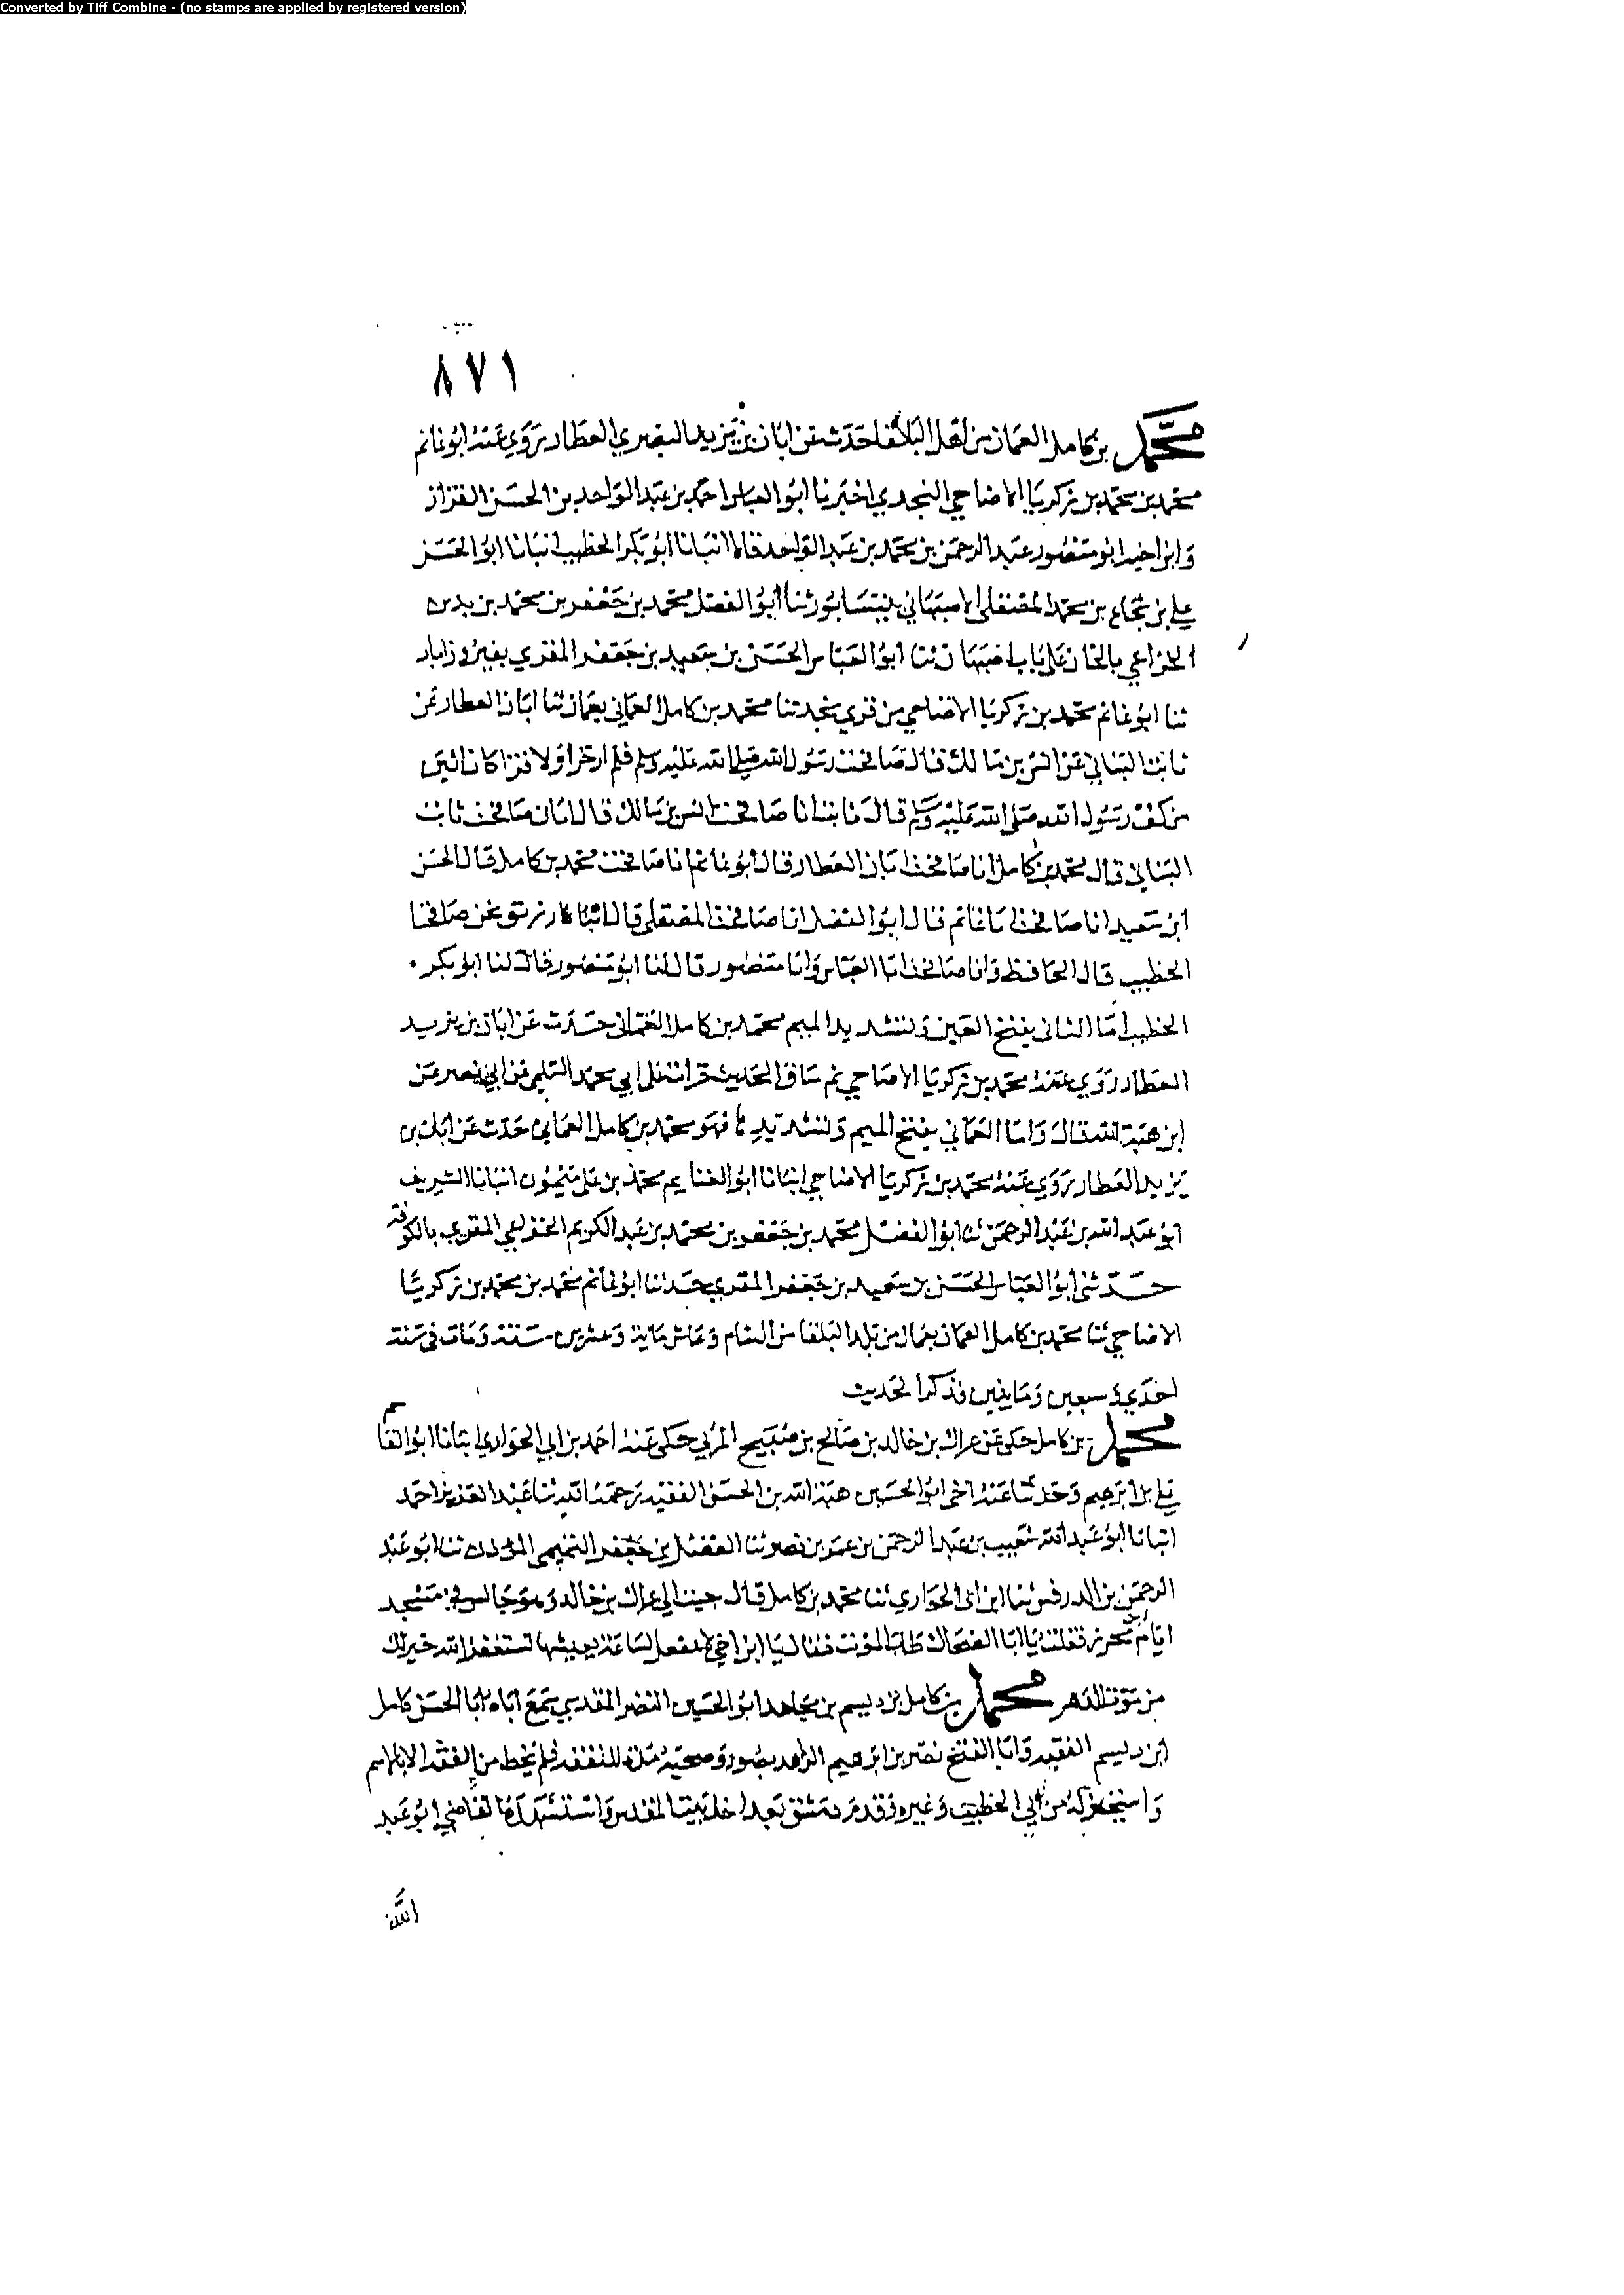 Converted by Tiff Combine - (no stamps are applied by registered version)
٨٧١
محمد بن كامل العمان من اهل البلقا حدث عن ابان بن يزيد البصري العطار روي عنه ابو غانم
محمد بن محمد بن زكريا الاضاحي النجدي اخبرنا ابو العباس احمد بن عبد الواحد بن الحسن القزاز
وابن اخيه ابو منصور عبد الرحمن بن محمد بن عبد الواحد قالا انبانا ابو بكر الخطيب انبانا ابو الحسن
علي بن شجاع بن محمد المصقلى الاصبهاني بنيسابور ثنا ابو الفضل محمد بن جعفر بن محمد بن بديل
الخزاعي بالخان على باب اصبهان ثنا ابو العباس الحسن بن سعيد بن جعفر المقري بفيروزاباد
ثنا ابو غانم محمد بن زكريا الاضاحي من قري نجد ثنا محمد بن كامل العماني بعمان ثنا ابان العطار عن
ثابت البناني عن انس بن مالك قال صافحت رسول الله صلى الله عليه وسلم فلم ار خزا ولا قزا كان الين
من كف رسول الله صلى الله عليه وسلم قال ثابت انا صافحت انس بن مالك قال ابان صافحت ثابت
البناني قال محمد بن كامل انا صافحت ابان العطار قال ابو غانم انا صافحت محمد بن كامل قال الحسن
ابن سعيد انا صافحت ابا غانم قال ابو الفضل انا صافحت المصقلى قال لنا نحن صافحنا
الخطيب قال الحافظ وانا صافحت ابا العباس وابا منصور قال لنا ابو منصور قال لنا ابو بكر
الخطيب اما الثانى بفتح العين وتشديد الميم محمد بن كامل العمانى حدث عن ابان بن يزيد
العطار روي عنه محمد بن زكريا الاضاحي ثم ساق الحديث قرات على ابي محمد السلمي عن ابي نصر عن
ابن هبة الله قال واما العماني بفتح الميم وتشديد فهو محمد بن كامل العماني حدث عن ابان بن
يزيد العطار روي عنه محمد بن زكريا الاضاحي انبانا ابو الغنايم محمد بن على بن ميمون انبانا الشريف
ابو عبد الله بن عبد الرحمن ثنا ابو الفضل محمد بن جعفر بن محمد بن عبد الكريم الخزاعي المقري بالكوفة
حدثنى ابو العباس الحسن بن سعيد بن جعفر المقري حدثنا ابو غانم محمد بن محمد بن زكريا
الاضاحي ثنا محمد بن كامل العمان بعمان من بلد البلقا من الشام وعاش ماية وعشرين سنة ومات في سنة
احدي وسبعين ومايتين فذكر الحديث
محمد بن كامل حكى عن عراك بن خالد بن صالح بن صبيح المري حكى عنه احمد بن ابي الحواري انبانا ابو القاسم
علي بن ابرهيم وحدثنا عنه اخي ابو الحسين هبة الله بن الحسن الفقيه رحمة الله ثنا عبد العزيز بن احمد
انبانا ابو عبد الله شعيب بن عبد الرحمن بن عمر بن نصر ثنا الفضل بن جعفر التميمي المؤذن ثنا ابو عبد
الرحمن بن الدرفس ثنا ابن ابى الحواري ثنا محمد بن كامل قال جيت الي عراك بن خالد وهو جالس في مسجد
ايام محرز فقلت يا ابا الضحاك طاب الموت فقال يا ابن اخي لا تفعل لساعة تعيشها تستغفر الله خير لك
من موت الدهر محمد بن كامل بن ديسم بن مجاهد ابو الحسين النضر المقدسي سمع اباه ابا الحسن كامل
ابن ديسم الفقيه وابا الفتح نصر بن ابرهيم الزاهد بصور وصحبه مدة للتفقه فلم يحظ من الفقه الا بالاسم
واستجيز له من ابي الخطيب وغيره وقدم دمشق بعد اخذ بيت المقدس واستشهد لها القاضي ابو عبد
الله